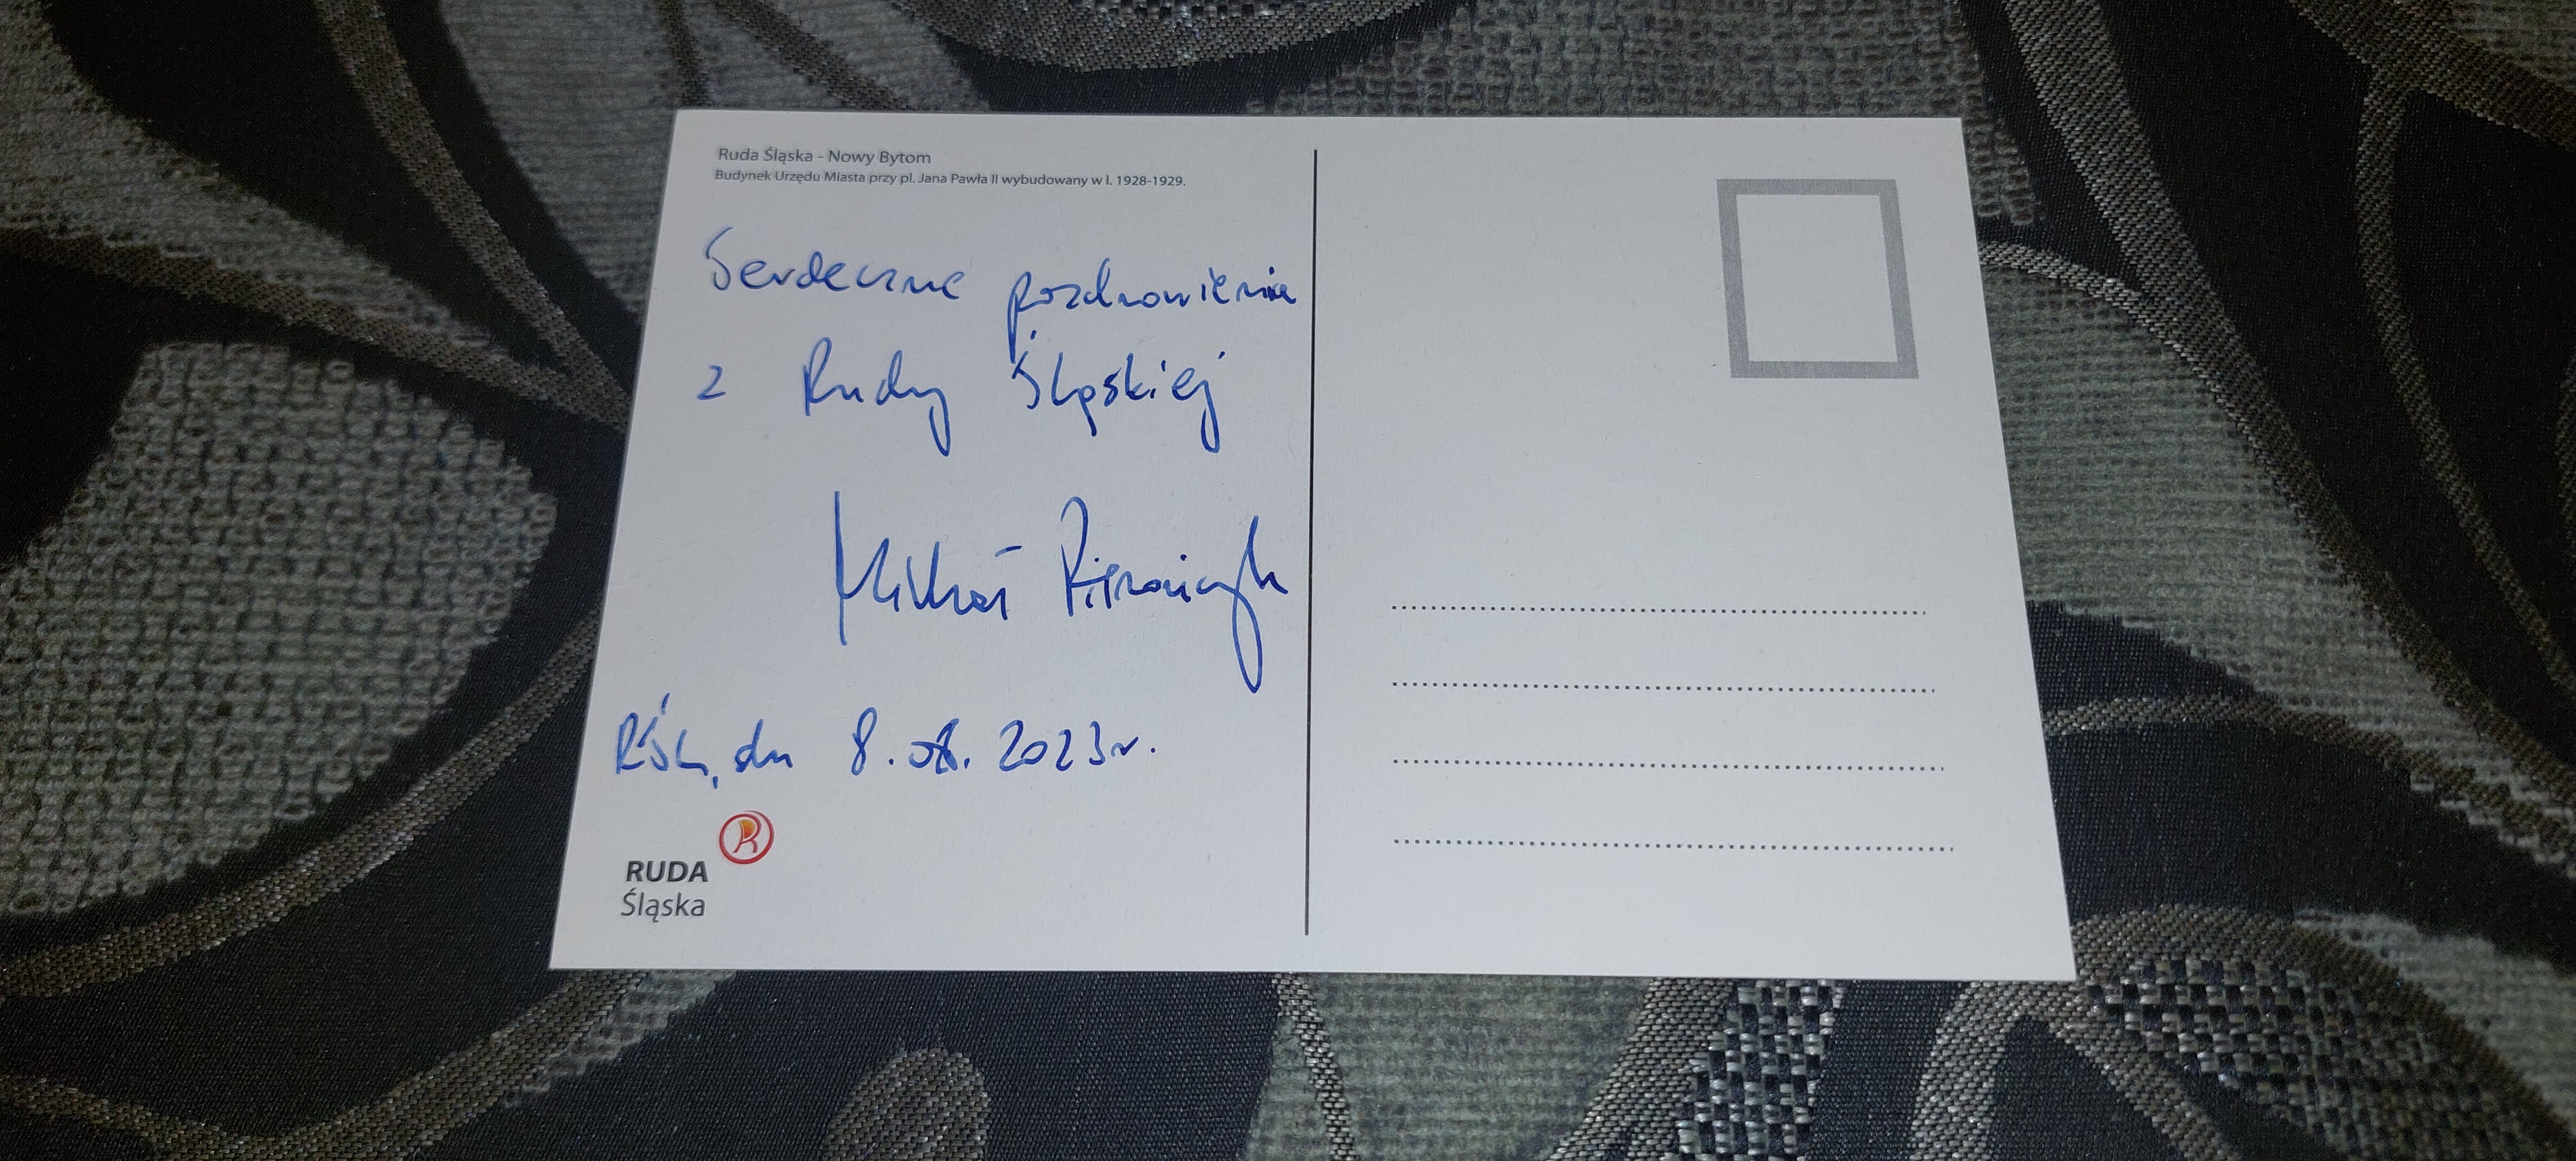 Ruda Śląska - Nowy Bytom
Budynek Urzędu Miasta przy pl. Jana Pawła II wybudowany w l. 1928-1929.
Serdeczne pozdrowienia
z Rudy Śląskiej
Michał Pierończyk
RŚl, dn 8.08.2023r.
RUDA
Śląska